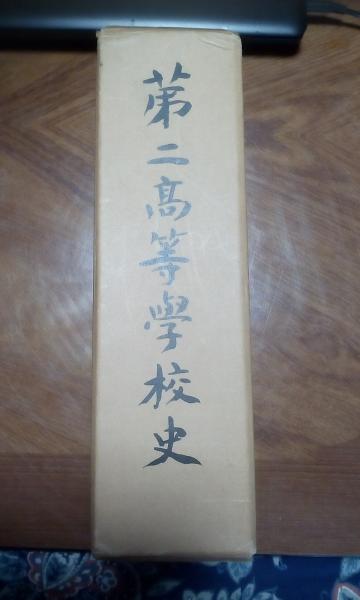 第二髙等學校史